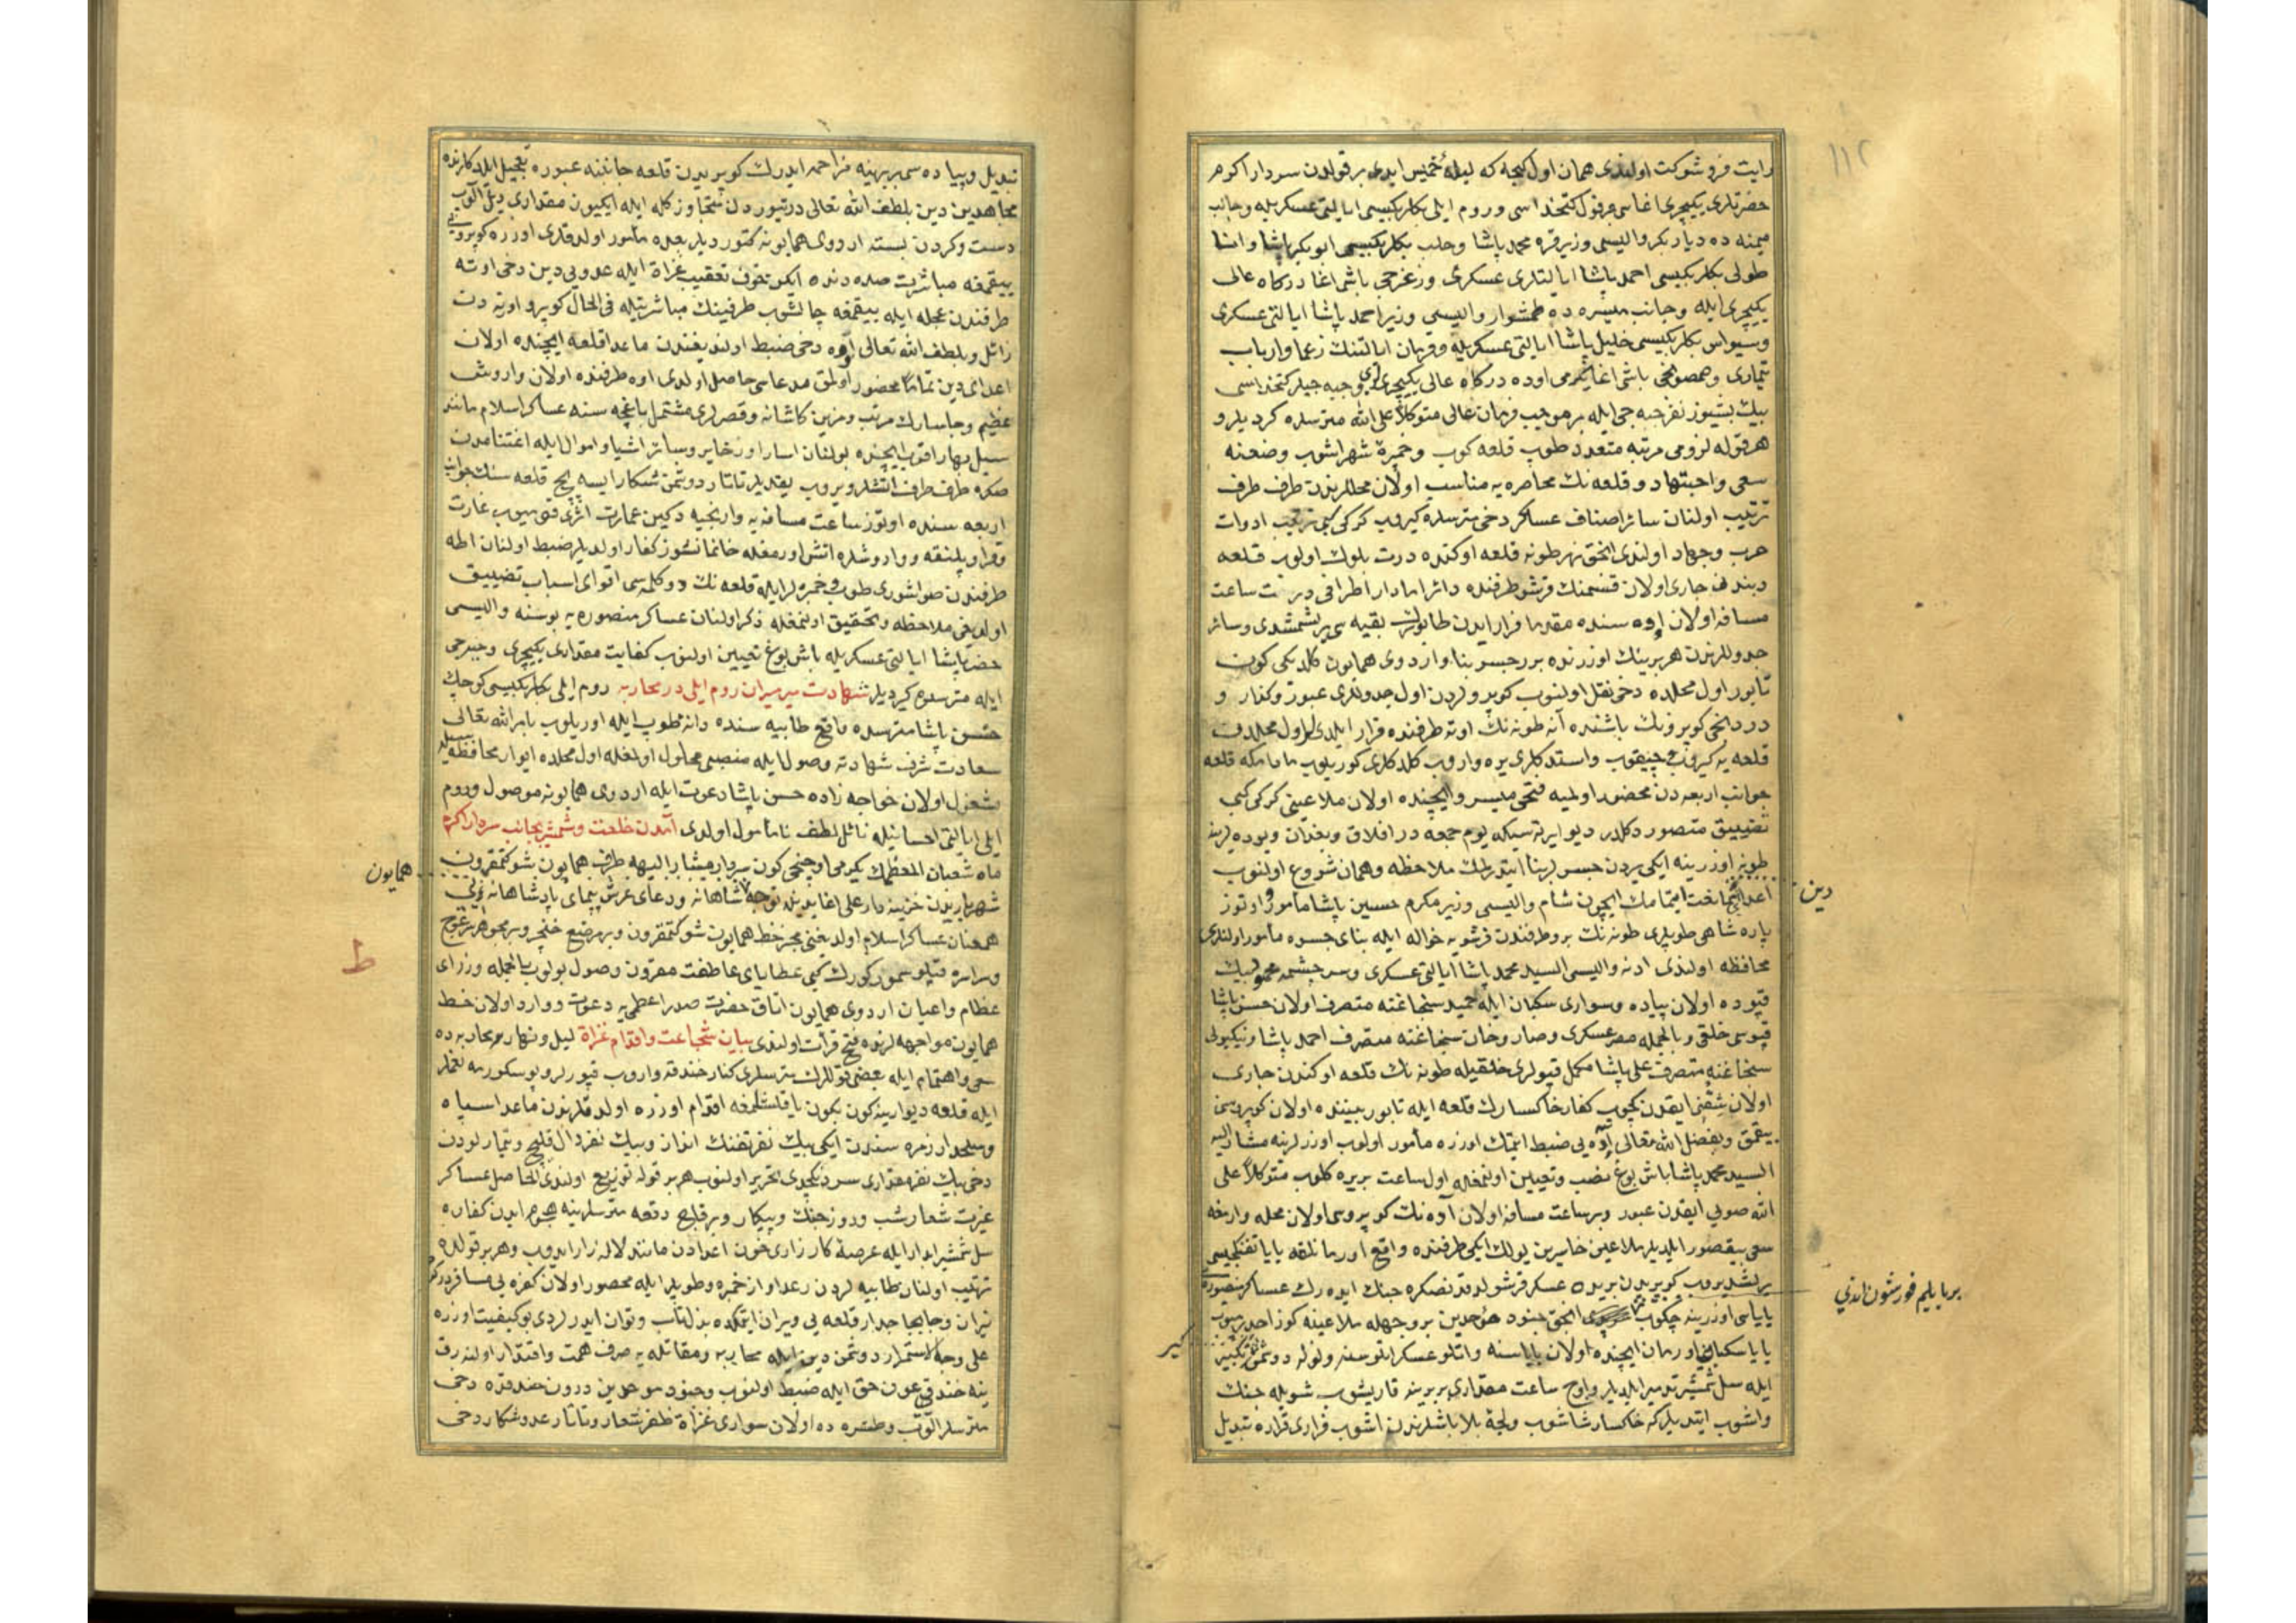 رايت فروشوكت اولندى همان اول كيجه كه ليلهٔ خميس ايدى بر قولدن سردار اكرم
حضرتلرى يكيچرى اغاسى و قول كتخداسى وروم ايلى بكلربكيسى ايالتى عسكريله وجانب
ميمنه ده ديار بكر واليسى وزير قره محمد پاشا وحلب بكلربكيسى ابو بكر پاشا واناـ
طولى بكلربكيسى احمد پاشا ايالتلرى عسكرى وزغرجى باشى اغا دركاه عالى
يكيچرى ايله وجانب ميسره ده طمشوار واليسى وزير احمد پاشا ايالتى عسكرى
وسيواس بكلربكيسى خليل پاشا ايالتى عسكريله وقرمان ايالتنك زعما وارباب
تيمارى وصمصونجى باشى اغا يكرمى اوده دركاه عالى يكيچرى وجبه جيلر كتخداسى
بيك بشيوز نفر جبه جى ايله بر موجب فرمان عالى متوكلاً على الله مترسلره كرديلر و
هر قوله لزومى مرتبه متعدد طوب قلعه كوب وخمبره شهراشوب وضعنه
سعى واجتهاد و قلعه نك محاصره يه مناسب اولان محللرندن طرف طرف
ترتيب اولنان سائر اصناف عساكر دخى مترسلره كيروب كركى كبى ترتيب ادوات
حرب وجهاد اولندى انجق نهر طونه قلعه اوكنده درت بلوك اولوب قلعه
ديندن جارى اولان قسمنك قرشو طرفنده دائرا مادار اطرافى درت ساعت
مسافه اولان اوه سنده مقدما فرار ايدن طابورك بقيه سى يرلشمشدى وسائر
جدوللرندن هر برينك اوزرنده برر جسر بنا واردوى همايون كلديكى كون
تابور اول محلده دخى نقل اولنوب كوپرولردن اول جدوللرى عبور وكفار و
دردنجى كوپرونك باشنده آنه طونه نك اوته طرفنده قرار ايلدى اول محلدن
قلعه يه كيروب چيقوب واستدكلرى يره واروب كلدكلرى كوريلوب مادامكه قلعه
جوانب اربعه دن محصور اولميه فتحى ميسر وايچنده اولان ملاعينى كركى كبى
تضييق متصور دكلدر ديو ايرته سيكه يوم جمعه در افلاق وبغدان ويوده لرينه
طونه اوزرينه ايكى يردن جسر بنا ايتدرلمك ملاحظه وهمان شروع اولنوب
اعدا مخالفت ايتمامك ايچون شام واليسى وزير مكرم حسين پاشا مأمور واوتوز
پاره شاهى طوپلرى طونه نك برو طرفندن قرشويه حواله ايله بناى جسره مأمور اولندى
محافظه اولندى ادنه واليسى السيد محمد پاشا ايالتى عسكرى وسرچشمه
قپوده اولان پياده وسوارى سكبان ايله حميد سنجاغنه متصرف اولان حسن پاشا
قپوسى خلقى وبالجمله مصر عسكرى وصاروخان سنجاغنه متصرف احمد پاشا ونيكبولى
سنجاغنه متصرف على پاشا مكمل قپولرى خلقيله طونه نك قلعه اوكندن جارى
اولان شقنى ايقدن كچوب كفار خاكسارك قلعه ايله تابور بيننده اولان كوپريسن
ييقمق وبفضل الله تعالى اوه يى ضبط ايتمك اوزره مأمور اولوب اوزرلرينه مشار اليه
السيد محمد پاشا باش بوغ نصب وتعيين اولنمغله اول ساعت بريره كلوب متوكلاً على
الله صويى ايقدن عبور وبر ساعت مسافه اولان اوه نك كوپروسى اولان محله وارنجه
سعى بيقصور ايلديلر ملاعين خاسرين يولك ايكى طرفنده واقع اورمانلقه پاپا تفنكجيسى
يرلشديروب كوپريدن بريده عسكر قرشولدقدنصكره جنك ايده رك عساكر منصوره
پاپاسى اوزرينه چكوب انجق جنود موحدين بر وجهله ملاعينه كوز اچدرميوب
پاپا سكبان اورمان ايچنده اولان پاپاسنه واتلو عسكر اتلوسنه ولوله دوشمن
ايله سل شمشير تدمير ايلديلر واوج ساعت مقدارى بربرينه قاريشوب شويله جنك
واشوب ايتديلركه خاكسار شاشوب ولجهٔ بلا باشلرندن اشوب فرارى قراره تبديل
دين
بر پاپليم قورشون اندى
كبير
تبديل وپياده سى بربرينه مزاحمه ايدرك كوپريدن قلعه جانبنه عبوره تعجيل ايلدكلرنده
مجاهدين دين بلطف الله تعالى درتيوزدن متجاوز كله ايله ايكيوز مقدارى ديل الوب
دست وكردن بسته اردوى همايونه كتورديلر بعده مأمور اولدقلرى اوزره كوپرويى
ييقمغه مباشرت صددنده ايكن خوف تعقيب غزاة ايله عدويى دين دخى اوته
طرفندن عجله ايله ييقمغه چالشوب طرفينك مباشرتيله فى الحال كوپرو اورته دن
زائل وبلطف الله تعالى اوه دخى ضبط اولنديغندن ماعدا قلعه ايچنده اولان
اعداى دين تماماً محصور اولمق مدعاسى حاصل اولدى اوه طرفنده اولان واروش
عظيم وجاسارك مرتب ومزين كاشانه وقصرلرى مشتمل باغچه سنه عساكر اسلام مانند
سيل بهار اقوب ايچنده بولنان اسار اوزخاير وسائر اشيا واموال ايله اغتنامدن
صكره طرف طرف اتشلر ويروب يقديلر تاتار دوشمن شكار ايسه بج قلعه سنك جوانب
اربعه سنده اوتوز ساعت مسافه يه وارنجيه دكين عمارت اثرى قوميوب غارت
وقرا وپلنقه وواروشلره اتش اورمغله خانمانسوز كفار اولديلر ضبط اولنان اطه
طرفندن صواشورى طوب وخمبره لر ايله قلعه نك دوكلمسى اقواى اسباب تضييق
اولديغى ملاحظه وتحقيق اولنمغله ذكر اولنان عساكر منصوره يه بوسنه واليسى
خضر پاشا ايالتى عسكريله باش بوغ تعيين اولنوب كفايت مقدارى يكيچرى وجبه جى
ايله مترسلره كيرديلر شهادت ميرميران روم ايلى در محاربه روم ايلى بكلربكيسى كوچك
حسن پاشا مترسده واقع طابيه سنده دانهٔ طوب ايله اوريلوب بامر الله تعالى
سعادت شرف شهادته وصول ايله منصبى محلول اولمغله اول محلده ايوار محافظه سيله
مشغول اولان خواجه زاده حسن پاشا دعوت ايله اردوى همايونه موصول وروم
ايلى ايالتى احسانيله نائل لطف نامأمول اولدى آمدن خلعت وشمشير بجانب سردار اكرم
ماه شعبان المعظمك يكرمى اوچنجى كون سردار مشار اليهه طرف همايون شوكتمقرون
شهرياريدن خزينه دار على اغا يديله توجه شاهانه ودعاى عرش پيماى پادشاهانه
همعنان عساكر اسلام اولديغنى مخبر خط همايون شوكتمقرون وبر مرصع خنجر وبر مجوهر
وسراسره قپلو سمور كورك كبى عطاياى عاطفت مقرون وصول بولوب بالجمله وزراى
عظام واعيان اردوى همايون اتاق حضرت صدر اعظمى يه دعوت ووارد اولان خط
همايون مواجهه لرنده فتح قرائت اولندى بيان شجاعت واقدام غزاة ليل ونهار محاربه ده
سعى واهتمام ايله بعضى قوللرك مترسلرى كنار خندقه واروب قپورلر وپوسكورمه لغملر
ايله قلعه ديوارينه كون بكون ياقلشلمغه اقدام اوزره اولدقلرندن ماعدا سپاه
وسلحدار زمره سندن ايكى بيك نفر تفنك انداز وبيك نفر دال قليج وتيمارلودن
دخى بيك نفر مقدارى سردنكچدى تحرير اولنوب هر بر قوله توزيع اولندى الحاصل عساكر
عزيمت شعار شب وروز جنك وپيكار وبر قاچ دفعه مترسلرينه هجوم ايدن كفاره
سل شمشير ابدار ايله عرصهٔ كارزارى خون اعدادن مانند لاله زار ايدوب وهر بر قولده
ترتيب اولنان طابيه لردن رعد اواز خمبره وطوپلر ايله محصور اولان كفره يى مسافر دركه
نيران وجابجا جدار قلعه يى ويران ايتمكده بذل تاب وتوان ايدرلردى بو كيفيت اوزره
على وجه الاستمرار دوشمن دين ايله محاربه ومقاتله يه صرف همت واقتدار اولنه رق
ينه خندقى عون حق ايله ضبط اولنوب وجنود موحدين درون خندقده دخى
مترسلر الوب وطشره ده اولان سوارى غزاة ظفر شعار وتاتار عدو شكار دخى
همايون
ط